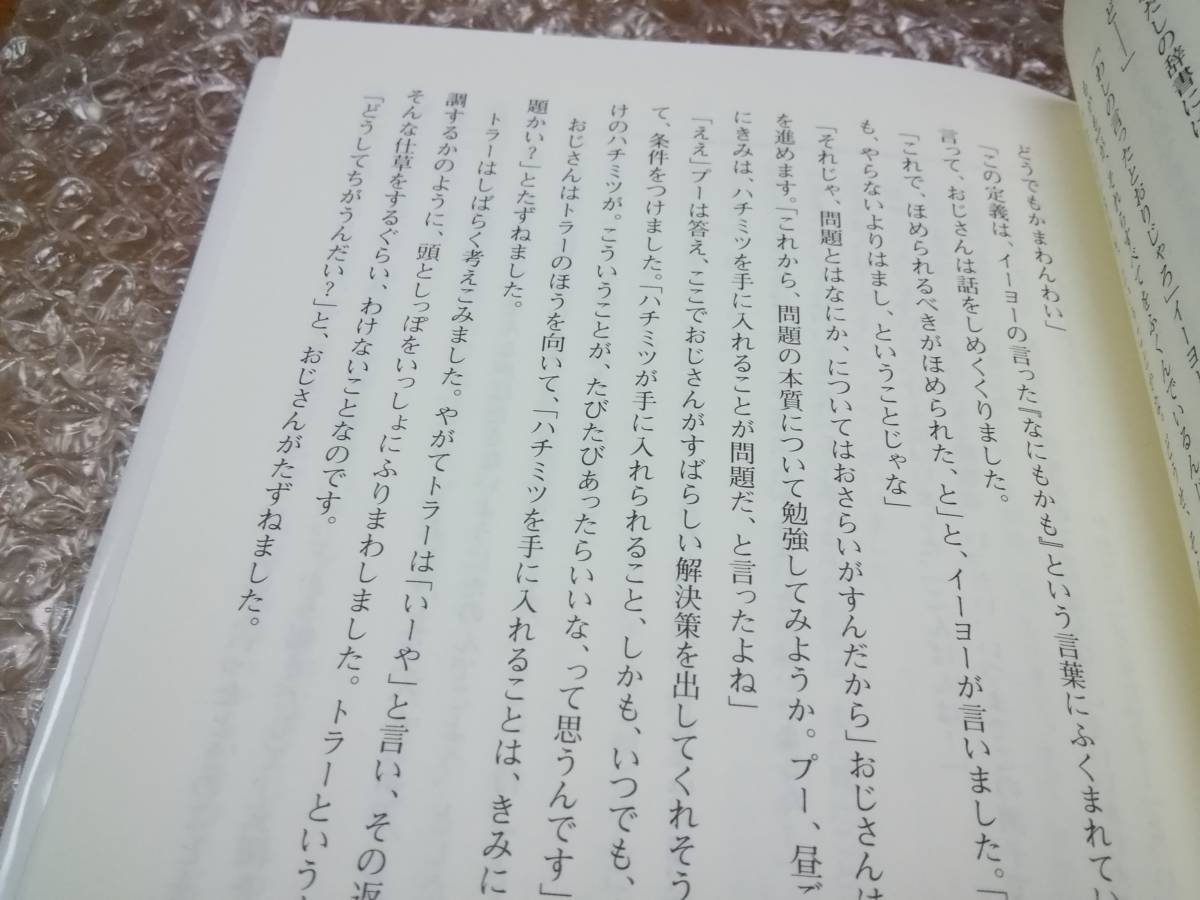 たしの辞書に
「わしの言ったとおりじゃろ」イーヨー
どうでもかまわんわい」
「この定義は、イーヨーの言った『なにもかも』という言葉にふくまれてい
言って、おじさんは話をしめくくりました。
「これで、ほめられるべきがほめられた、と」と、イーヨーが言いました。「
も、やらないよりはまし、ということじゃな」
「それじゃ、問題とはなにか、についてはおさらいがすんだから」おじさんは
を進めます。「これから、問題の本質について勉強してみようか。プー、昼ご
にきみは、ハチミツを手に入れることが問題だ、と言ったよね」
「ええ」プーは答え、ここでおじさんがすばらしい解決策を出してくれそう
て、条件をつけました。「ハチミツが手に入れられること、しかも、いつでも、
けのハチミツが。こういうことが、たびたびあったらいいな、って思うんです」
おじさんはトラーのほうを向いて、「ハチミツを手に入れることは、きみに
題かい？」とたずねました。
トラーはしばらく考えこみました。やがてトラーは「いーや」と言い、その返
調するかのように、頭としっぽをいっしょにふりまわしました。トラーという
そんな仕草をするぐらい、わけないことなのです。
「どうしてちがうんだい？」と、おじさんがたずねました。